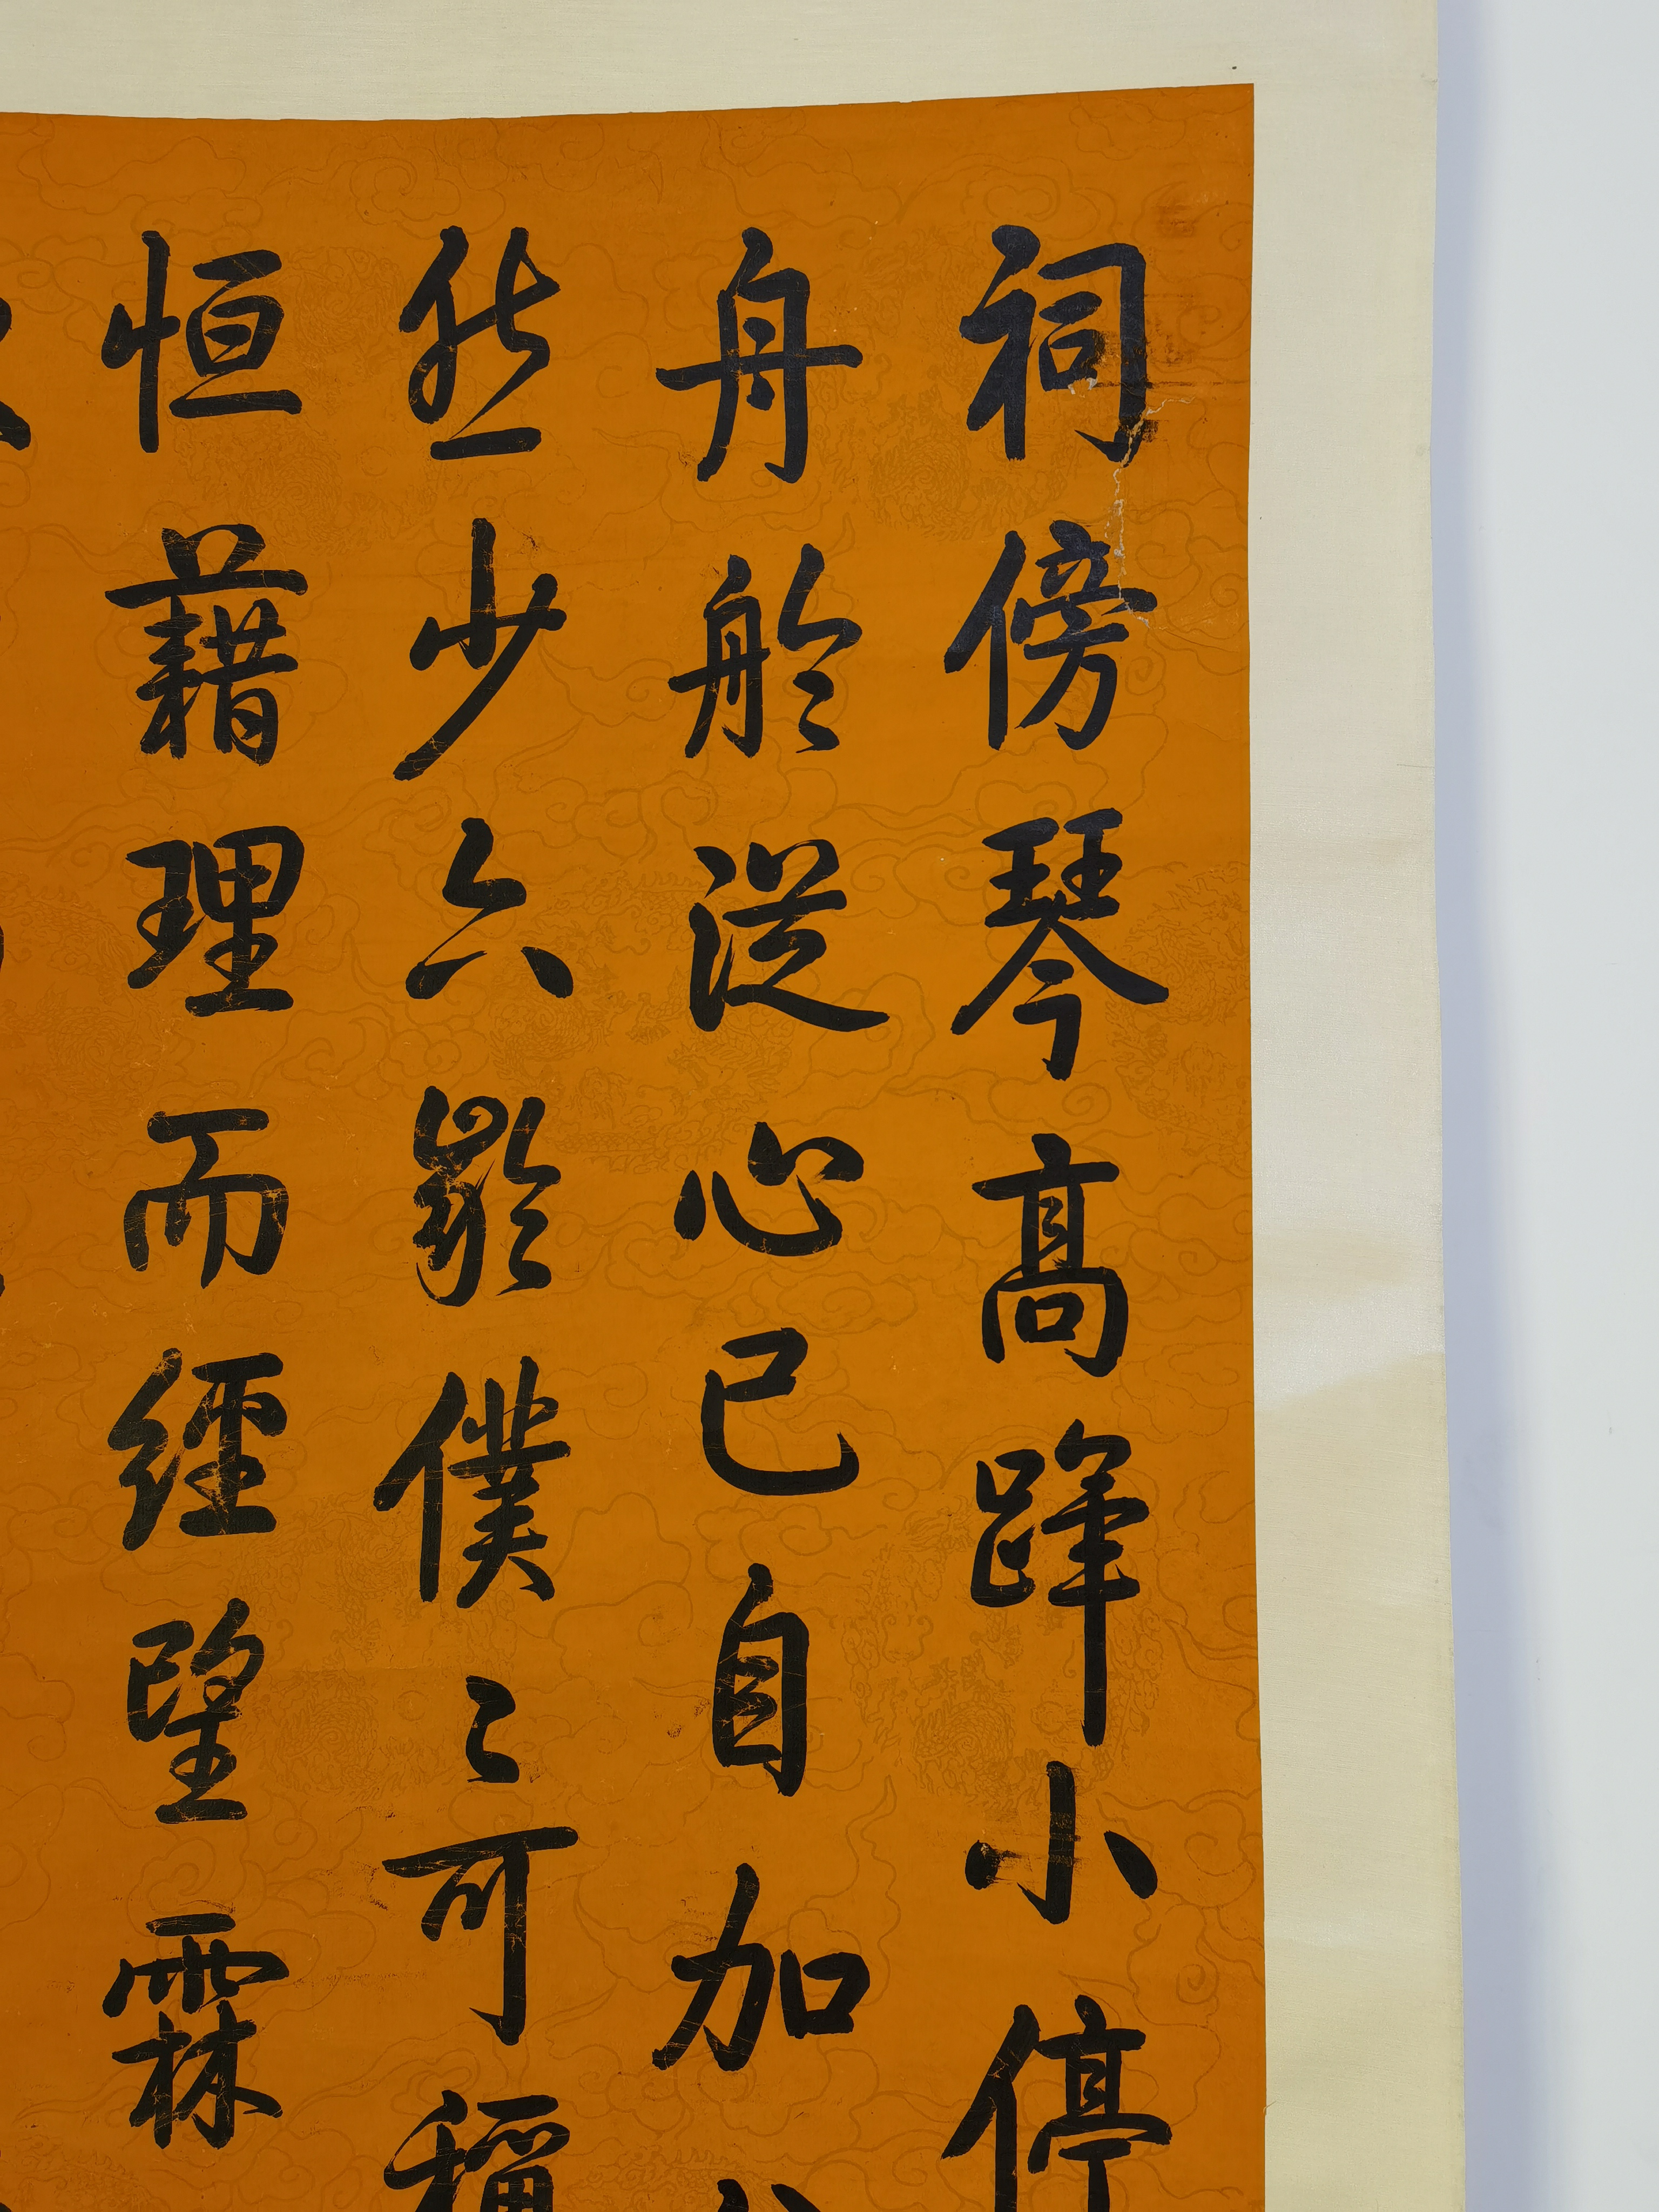 祠傍琴高蹕小停
舟舲從心已自加
然少六齡僕〻可稱
恒藉理而經望霖